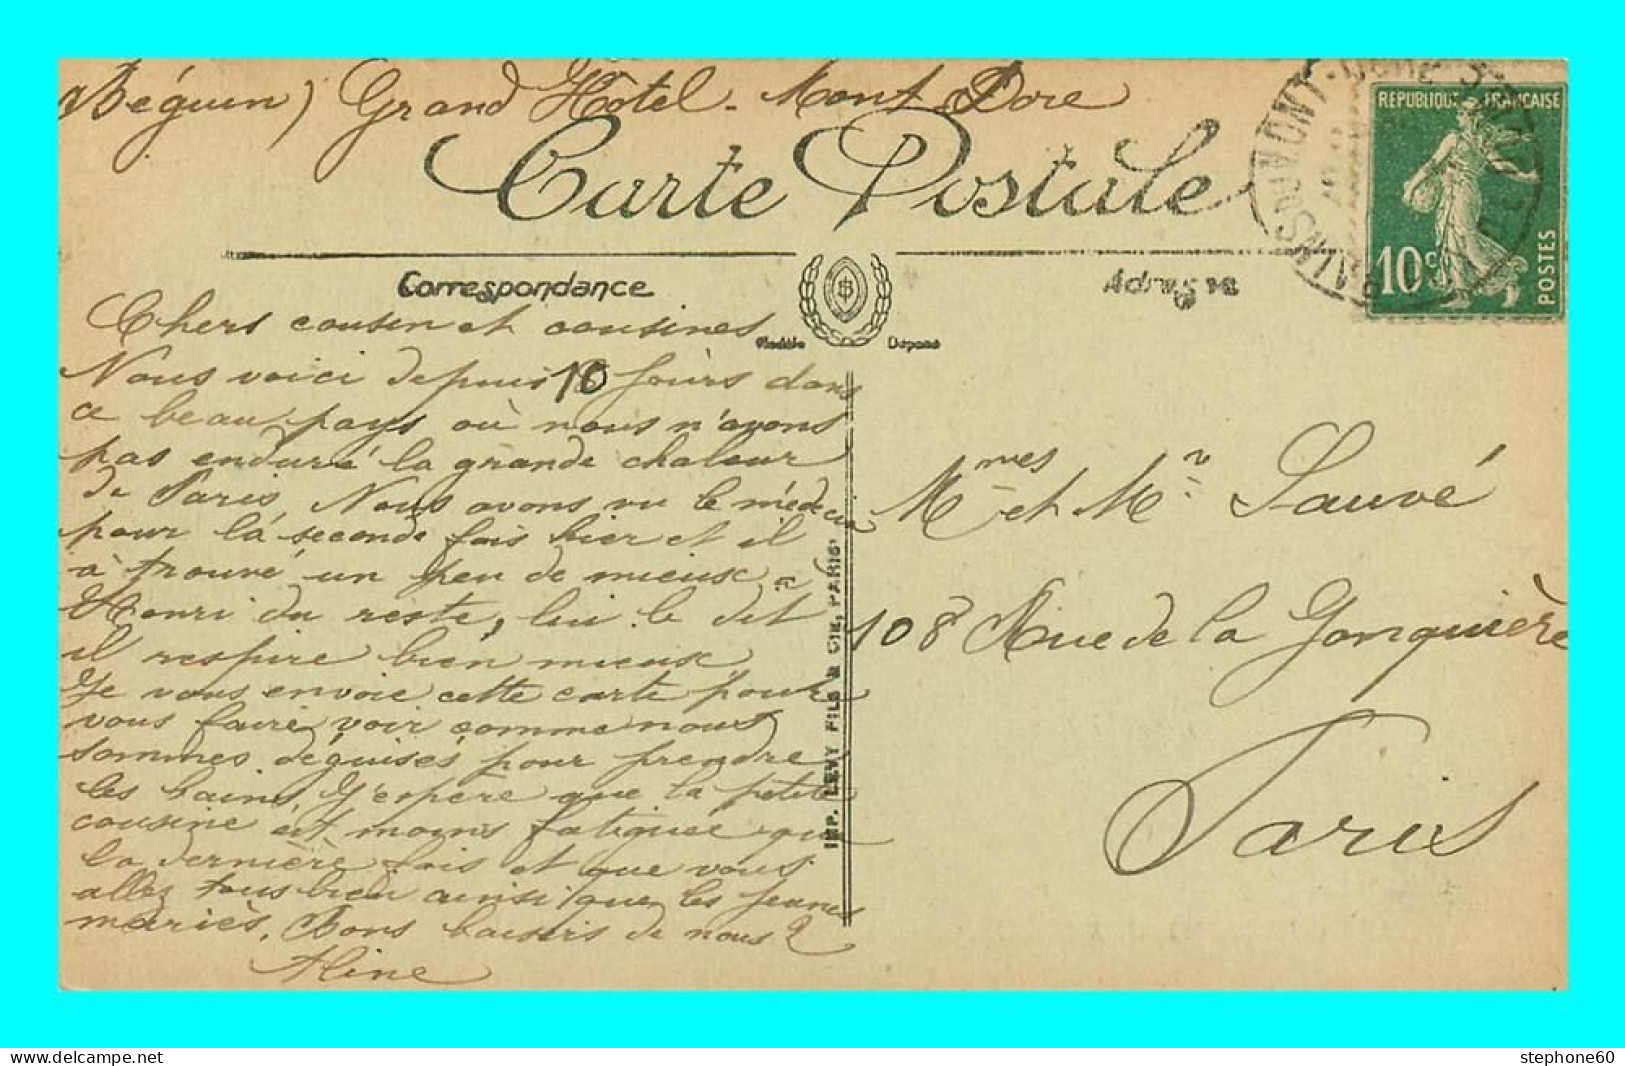 Béguin) Grand Hôtel - Mont Dore
Carte Postale
REPUBLIQUE FRANCAISE
10c
POSTES
Correspondance
Adresse
Modèle Déposé
Chers cousin et cousines
Nous voici depuis 10 jours dans
ce beau pays où nous n'avons
pas enduré la grande chaleur
de Paris, Nous avons vu le médecin
pour la seconde fois hier et il
à trouvé un peu de mieux à
Henri du reste, lui le dit
il respire bien mieux
Je vous envoie cette carte pour
vous faire voir comme nous
sommes déguisés pour prendre
les bains, J'espère que la petite
cousine est moins fatiguée que
la dernière fois et que vous
allez tous bien ainsi que les jeunes
mariés. Bons baisers de nous 2
Aline
IMP. LEVY FILS & CIE, PARIS
Mmes et Mr Sauvé
108 Rue de la Jonquière
Paris
stephone60